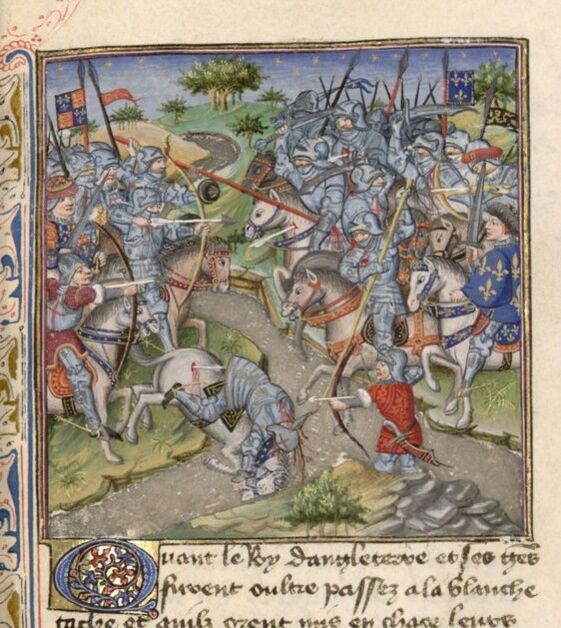 Quant le Roy dangleterre et ses gẽs
furent oultre passez a la blanche
tache et quilz orent mis en chace leurs